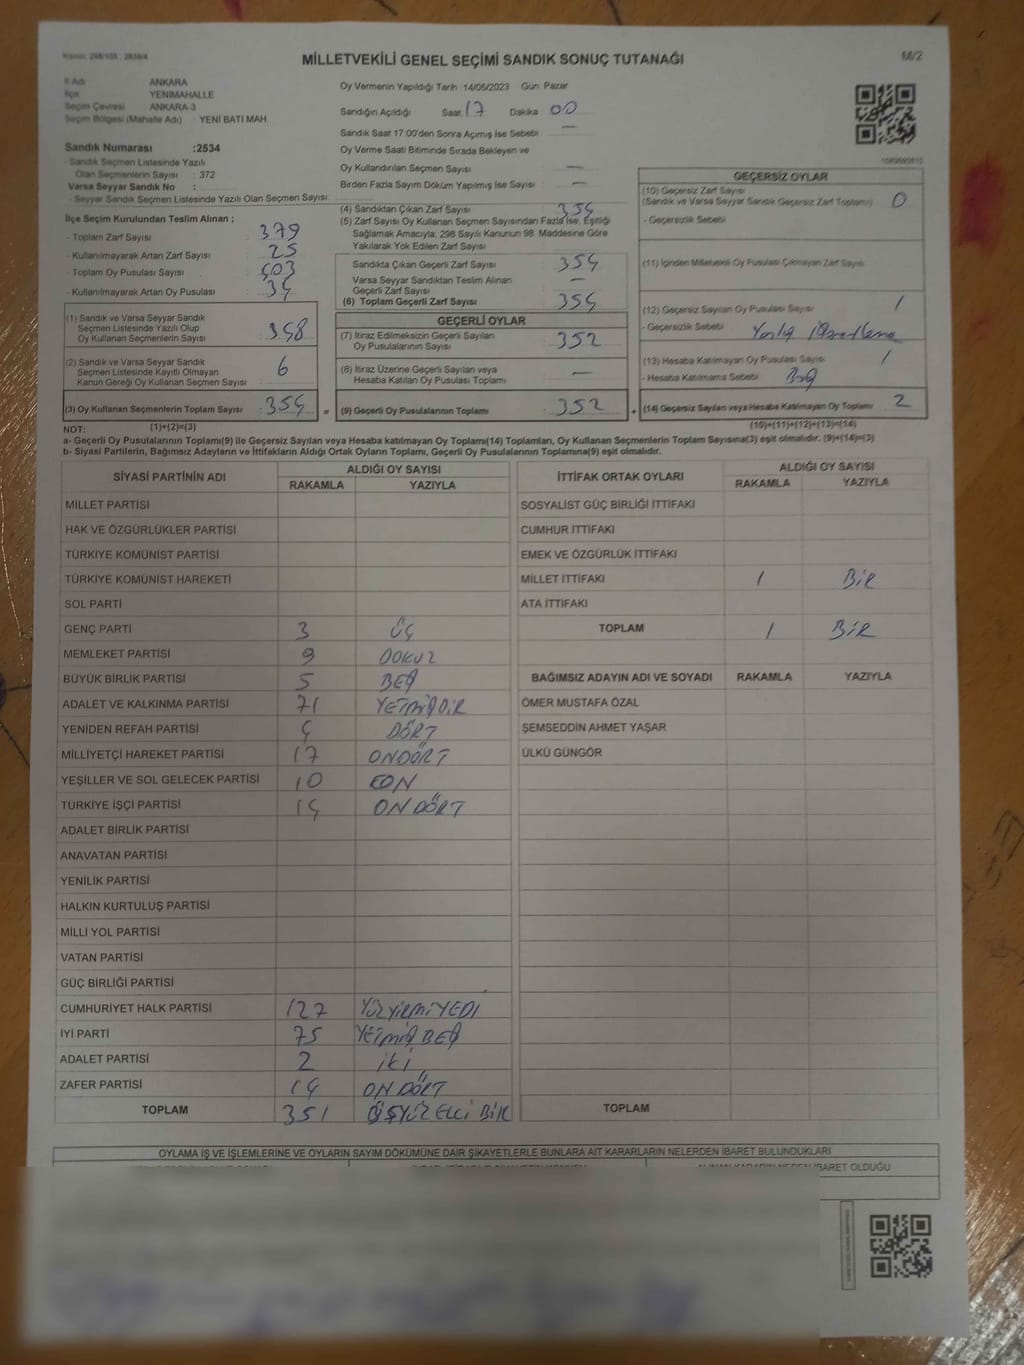 Kanun: 298/105 - 2839/4
MİLLETVEKİLİ GENEL SEÇİMİ SANDIK SONUÇ TUTANAĞI
M/2
İl Adı ANKARA
İlçe YENİMAHALLE
Seçim Çevresi ANKARA-3
Seçim Bölgesi (Mahalle Adı) YENİ BATI MAH
Sandık Numarası :2534
- Sandık Seçmen Listesinde Yazılı
Olan Seçmenlerin Sayısı : 372
Varsa Seyyar Sandık No :
- Seyyar Sandık Seçmen Listesinde Yazılı Olan Seçmen Sayısı:
Oy Vermenin Yapıldığı Tarih 14/05/2023 Gün: Pazar
Sandığın Açıldığı Saat 17 Dakika 00
Sandık Saat 17:00'den Sonra Açımış İse Sebebi : —
Oy Verme Saati Bitiminde Sırada Bekleyen ve
Oy Kullandırılan Seçmen Sayısı —
Birden Fazla Sayım Döküm Yapılmış İse Sayısı : —
İlçe Seçim Kurulundan Teslim Alınan ;
- Toplam Zarf Sayısı : 379
- Kullanılmayarak Artan Zarf Sayısı : 25
- Toplam Oy Pusulası Sayısı : 403
- Kullanılmayarak Artan Oy Pusulası : 34
(1) Sandık ve Varsa Seyyar Sandık
Seçmen Listesinde Yazılı Olup
Oy Kullanan Seçmenlerin Sayısı : 348
(2) Sandık ve Varsa Seyyar Sandık
Seçmen Listesinde Kayıtlı Olmayan
Kanun Gereği Oy Kullanan Seçmen Sayısı : 6
(3) Oy Kullanan Seçmenlerin Toplam Sayısı : 354 =
(4) Sandıktan Çıkan Zarf Sayısı : 354
(5) Zarf Sayısı Oy Kullanan Seçmen Sayısından Fazla İse, Eşitliği
Sağlamak Amacıyla; 298 Sayılı Kanunun 98. Maddesine Göre
Yakılarak Yok Edilen Zarf Sayısı
Sandıkta Çıkan Geçerli Zarf Sayısı : 354
Varsa Seyyar Sandıktan Teslim Alınan
Geçerli Zarf Sayısı : —
(6) Toplam Geçerli Zarf Sayısı : 354
GEÇERLİ OYLAR
(7) İtiraz Edilmeksizin Geçerli Sayılan
Oy Pusulalarının Sayısı : 352
(8) İtiraz Üzerine Geçerli Sayılan veya
Hesaba Katılan Oy Pusulası Toplamı : —
(9) Geçerli Oy Pusulalarının Toplamı : 352 +
GEÇERSİZ OYLAR
(10) Geçersiz Zarf Sayısı
(Sandık ve Varsa Seyyar Sandık Geçersiz Zarf Toplamı) : 0
- Geçersizlik Sebebi
(11) İçinden Milletvekili Oy Pusulası Çıkmayan Zarf Sayısı
(12) Geçersiz Sayılan Oy Pusulası Sayısı : 1
- Geçersizlik Sebebi
(13) Hesaba Katılmayan Oy Pusulası Sayısı : 1
- Hesaba Katılmama Sebebi : Boş
(14) Geçersiz Sayılan veya Hesaba Katılmayan Oy Toplamı : 2
NOT: (1)+(2)=(3)
(10)+(11)+(12)+(13)=(14)
a- Geçerli Oy Pusulalarının Toplamı(9) ile Geçersiz Sayılan veya Hesaba katılmayan Oy Toplamı(14) Toplamları, Oy Kullanan Seçmenlerin Toplam Sayısına(3) eşit olmalıdır. (9)+(14)=(3)
b- Siyasi Partilerin, Bağımsız Adayların ve İttifakların Aldığı Oyların Toplamı, Geçerli Oy Pusulalarının Toplamına(9) eşit olmalıdır.
SİYASİ PARTİNİN ADI ALDIĞI OY SAYISI
RAKAMLA YAZIYLA
MİLLET PARTİSİ
HAK VE ÖZGÜRLÜKLER PARTİSİ
TÜRKİYE KOMÜNİST PARTİSİ
TÜRKİYE KOMÜNİST HAREKETİ
SOL PARTİ
GENÇ PARTİ 3 ÜÇ
MEMLEKET PARTİSİ 9 DOKUZ
BÜYÜK BİRLİK PARTİSİ 5 BEŞ
ADALET VE KALKINMA PARTİSİ 71 YETMİŞBİR
YENİDEN REFAH PARTİSİ 4 DÖRT
MİLLİYETÇİ HAREKET PARTİSİ 17 ONDÖRT
YEŞİLLER VE SOL GELECEK PARTİSİ 10 ON
TÜRKİYE İŞÇİ PARTİSİ 14 ON DÖRT
ADALET BİRLİK PARTİSİ
ANAVATAN PARTİSİ
YENİLİK PARTİSİ
HALKIN KURTULUŞ PARTİSİ
MİLLİ YOL PARTİSİ
VATAN PARTİSİ
GÜÇ BİRLİĞİ PARTİSİ
CUMHURİYET HALK PARTİSİ 127 YÜZYİRMİYEDİ
İYİ PARTİ 75 YETMİŞ BEŞ
ADALET PARTİSİ 2 İKİ
ZAFER PARTİSİ 14 ON DÖRT
TOPLAM 351 ÜÇYÜZ ELLİ BİR
İTTİFAK ORTAK OYLARI ALDIĞI OY SAYISI
RAKAMLA YAZIYLA
SOSYALİST GÜÇ BİRLİĞİ İTTİFAKI
CUMHUR İTTİFAKI
EMEK VE ÖZGÜRLÜK İTTİFAKI
MİLLET İTTİFAKI 1 BİR
ATA İTTİFAKI
TOPLAM 1 BİR
BAĞIMSIZ ADAYIN ADI VE SOYADI RAKAMLA YAZIYLA
ÖMER MUSTAFA ÖZAL
ŞEMSEDDİN AHMET YAŞAR
ÜLKÜ GÜNGÖR
TOPLAM
OYLAMA İŞ VE İŞLEMLERİNE VE OYLARIN SAYIM DÖKÜMÜNE DAİR ŞİKAYETLERLE BUNLARA AİT KARARLARIN NELERDEN İBARET BULUNDUKLARI